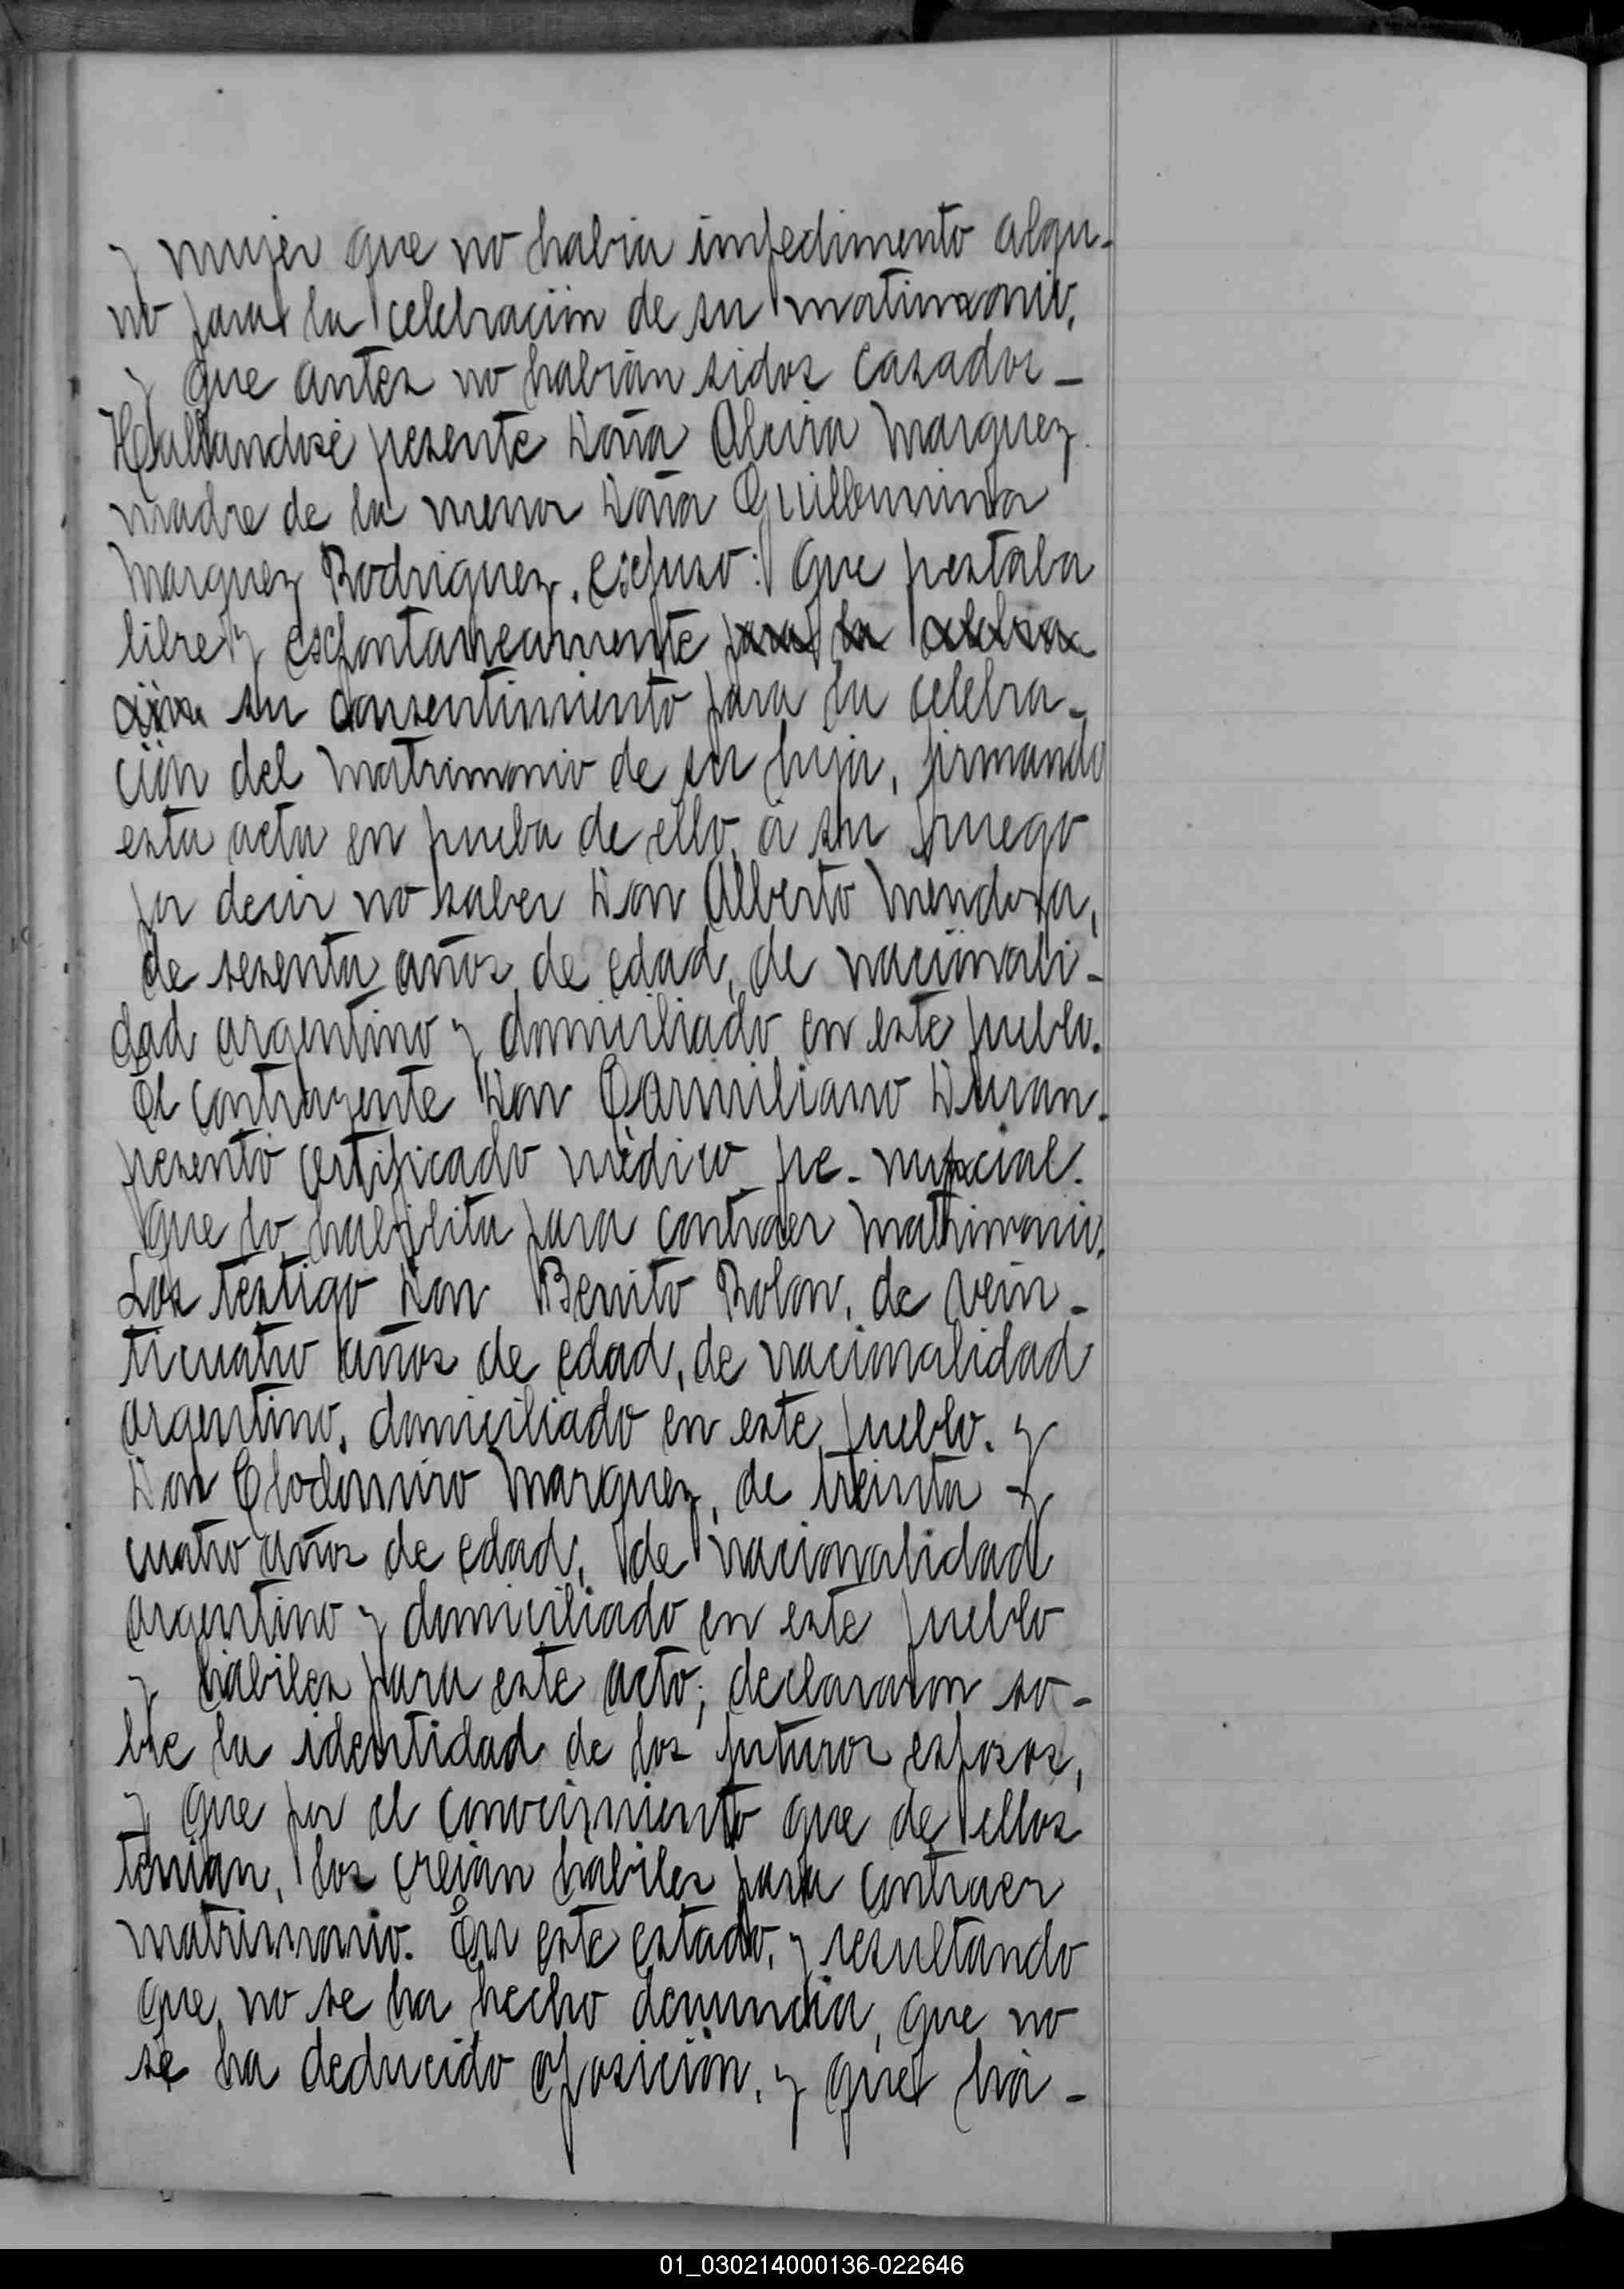 y mujer que no habia impedimento algu-
no para la celebración de su matrimonio,
y que antes no habián sidos casados -
Hallandosé presente Doña Alcira Marquez
madre de la menor Doña Guillermina
Marquez Rodriguez, expuso: Que prestaba
libre y espontaneamente para la celebra
ción su consentimiento para la celebra-
ción del matrimonio de su hija, firmando
esta acta en prueba de ello, á su ruego
por decir no saber Don Alberto Mendoza,
de sesenta años de edad, de nacionali-
dad argentino y domiciliado en este pueblo.
El contrayente Don Duran.
presentó certificado médico pre-nupcial.
que lo habilita para contraer matrimonio.
Los testigo Don Benito Rolon, de vein-
ticuatro años de edad, de nacionalidad
argentino, domiciliado en este pueblo. y
Don Clodomiro Marquez, de treinta y
cuatro años de edad, de nacionalidad
argentino y domiciliado en este pueblo
y hábiles para este acto; declararon so-
bre la identidad de los futuros esposos,
y que por el conocimiento que de ellos
tenian, los creián habiles para contraer
matrimonio. En este estado, y resultando
que no se ha hecho denuncia, que no
se ha deducido oposición, y que há-
01_030214000136-022646